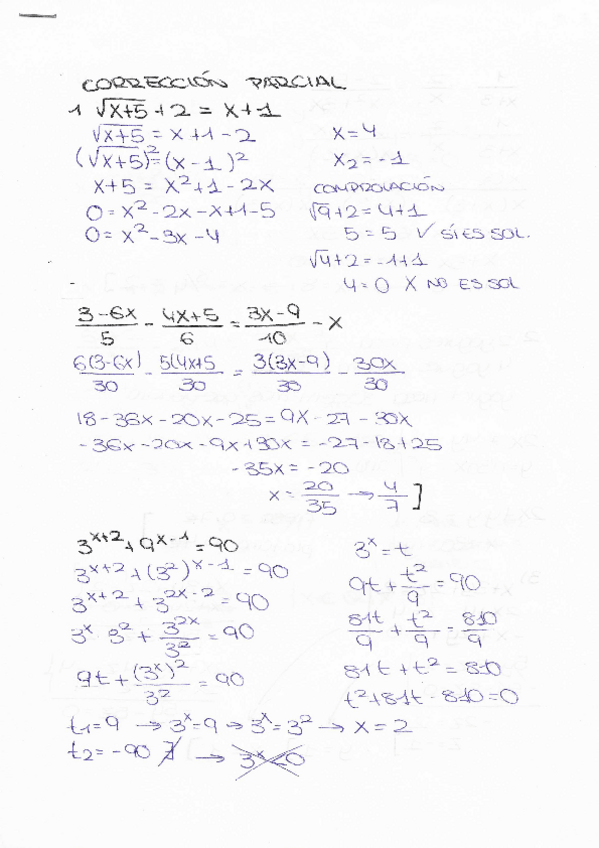 CORRECCIÓN PARCIAL
1 √x+5 + 2 = x+1
√x+5 = x+1-2
(√x+5)² = (x-1)²
x+5 = x²+1-2x
0 = x²-2x-x+1-5
0 = x²-3x-4
x=4
x₂=-1
COMPROBACIÓN
√9+2=4+1
5=5 ✓ SÍ ES SOL.
√4+2=-1+1
4=0 X NO ES SOL
3-6x/5 - 4x+5/6 = 3x-9/10 - x
6(3-6x)/30 - 5(4x+5/30 = 3(3x-9)/30 - 30x/30
18-36x-20x-25=9x-27-30x
-36x-20x-9x+30x=-27-18+25
-35x=-20
x=20/35 → 4/7 ]
3^(x+2)+9^(x-1)=90
3^(x+2)+(3²)^(x-1)=90
3^(x+2)+3^(2x-2)=90
3^x·3²+3^(2x)/3²=90
9t+(3^x)²/3²=90
3^x=t
9t+t²/9=90
81t/9+t²/9=810/9
81t+t²=810
t²+81t-810=0
t₁=9 → 3^x=9 → 3^x=3² → x=2
t₂=-90 ∄ →